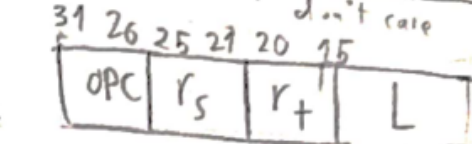 don't care
31 26 25 21 20 15
OPC rs rt L